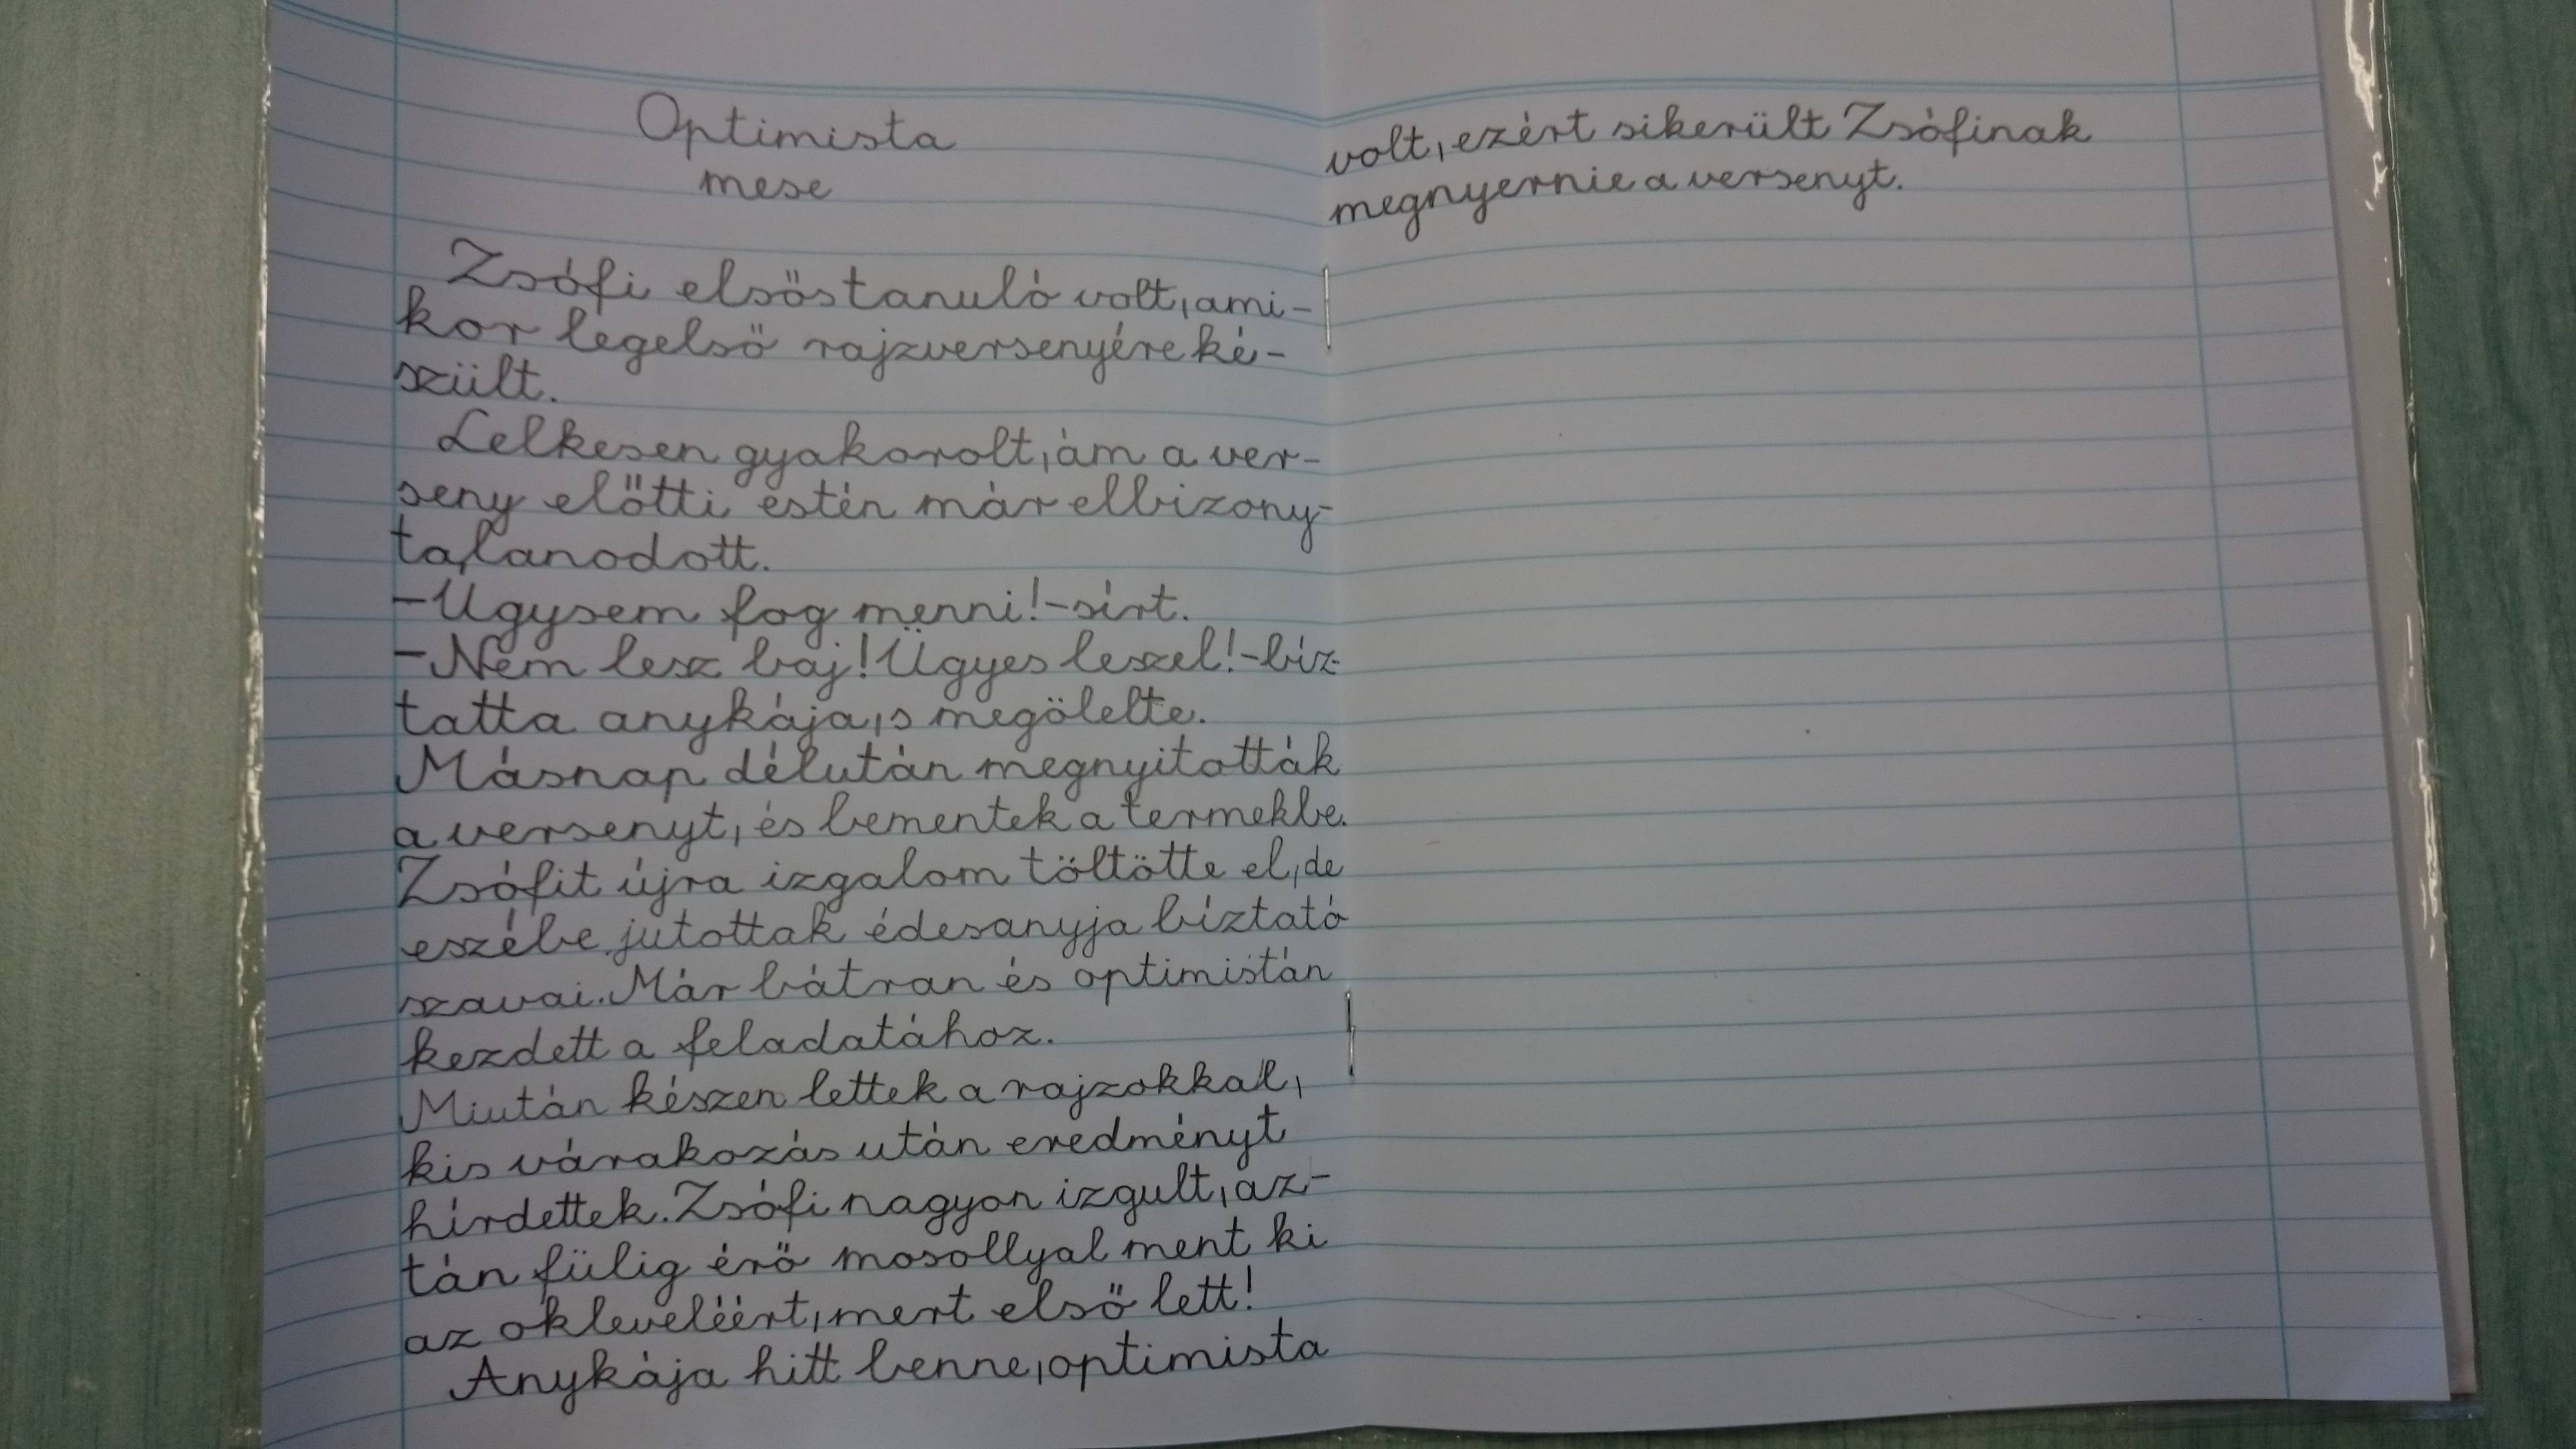 Optimista
mese
Zsófi elsős tanuló volt, ami-
kor legelső rajzversenyére ké-
szült.
Lelkesen gyakorolt, ám a ver-
seny előtti estén már elbizony-
talanodott.
-Úgysem fog menni!-sírt.
-Nem lesz baj! Ügyes leszel!-bíz-
tatta anykája, s megölelte.
Másnap délután megnyitották
a versenyt, és bementek a termekbe.
Zsófit újra izgalom töltötte el, de
eszébe jutottak édesanyja bíztató
szavai. Már bátran és optimistán
kezdett a feladatához.
Miután készen lettek a rajzokkal,
kis várakozás után eredményt
hírdettek. Zsófi nagyon izgult, az-
tán fülig érő mosollyal ment ki
az okleveléért, mert első lett!
Anykája hitt benne, optimista
volt, ezért sikerült Zsófinak
megnyernie a versenyt.